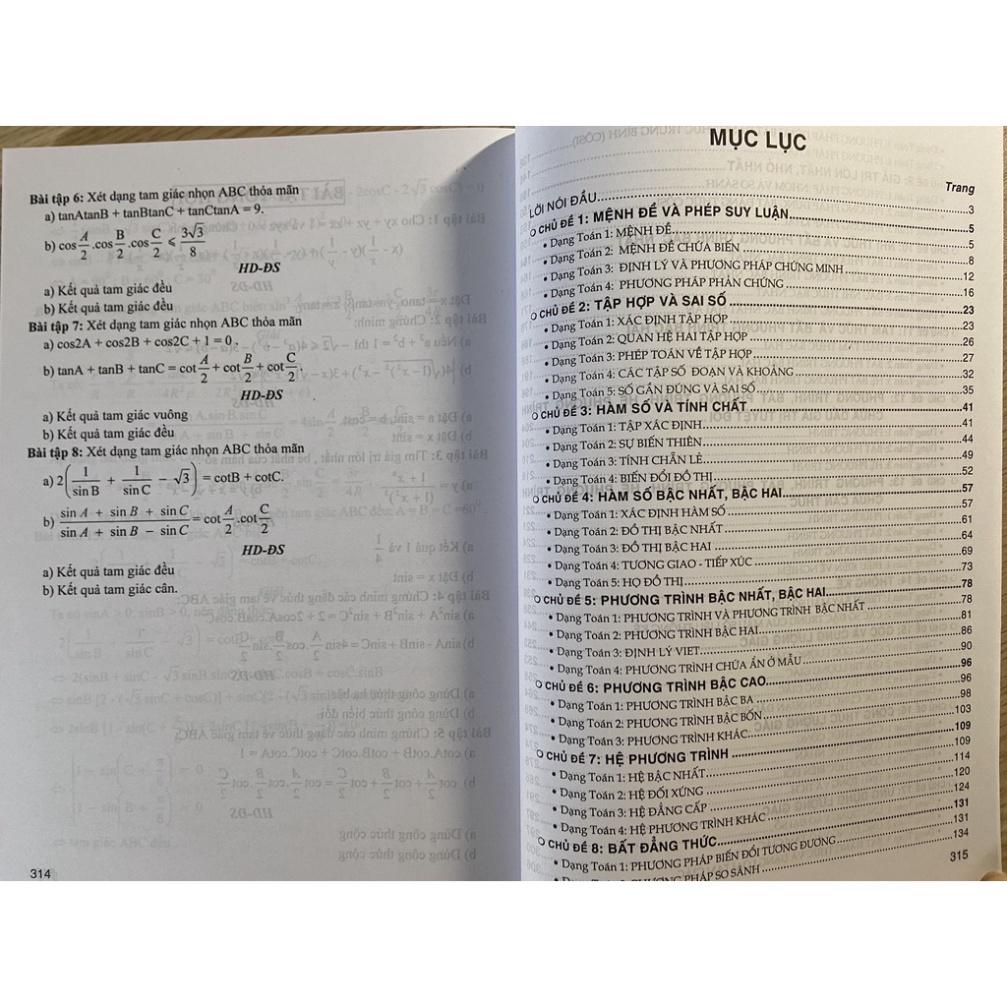 Bài tập 6: Xét dạng tam giác nhọn ABC thỏa mãn
a) tanAtanB + tanBtanC + tanCtanA = 9.
b) cos A/2 .cos B/2 .cos C/2 ⩽ 3√3/8
HD-ĐS
a) Kết quả tam giác đều
b) Kết quả tam giác đều
Bài tập 7: Xét dạng tam giác nhọn ABC thỏa mãn
a) cos2A + cos2B + cos2C + 1 = 0 .
b) tanA + tanB + tanC = cot A/2 + cot B/2 + cot C/2 .
HD-ĐS
a) Kết quả tam giác vuông
b) Kết quả tam giác đều
Bài tập 8: Xét dạng tam giác nhọn ABC thỏa mãn
a) 2(1/sinB + 1/sinC − √3) = cotB + cotC.
b) (sin A + sin B + sin C)/(sin A + sin B − sin C) = cot A/2 .cot C/2
HD-ĐS
a) Kết quả tam giác đều
b) Kết quả tam giác cân.
314
MỤC LỤC
Trang
LỜI NÓI ĐẦU 3
CHỦ ĐỀ 1: MỆNH ĐỀ VÀ PHÉP SUY LUẬN 5
• Dạng Toán 1: MỆNH ĐỀ 5
• Dạng Toán 2: MỆNH ĐỀ CHỨA BIẾN 8
• Dạng Toán 3: ĐỊNH LÝ VÀ PHƯƠNG PHÁP CHỨNG MINH 12
• Dạng Toán 4: PHƯƠNG PHÁP PHẢN CHỨNG 16
CHỦ ĐỀ 2: TẬP HỢP VÀ SAI SỐ 23
• Dạng Toán 1: XÁC ĐỊNH TẬP HỢP 23
• Dạng Toán 2: QUAN HỆ HAI TẬP HỢP 26
• Dạng Toán 3: PHÉP TOÁN VỀ TẬP HỢP 27
• Dạng Toán 4: CÁC TẬP SỐ ĐOẠN VÀ KHOẢNG 32
• Dạng Toán 5: SỐ GẦN ĐÚNG VÀ SAI SỐ 35
CHỦ ĐỀ 3: HÀM SỐ VÀ TÍNH CHẤT 41
• Dạng Toán 1: TẬP XÁC ĐỊNH 41
• Dạng Toán 2: SỰ BIẾN THIÊN 44
• Dạng Toán 3: TÍNH CHẴN LẺ 49
• Dạng Toán 4: BIẾN ĐỔI ĐỒ THỊ 52
CHỦ ĐỀ 4: HÀM SỐ BẬC NHẤT, BẬC HAI 57
• Dạng Toán 1: XÁC ĐỊNH HÀM SỐ 57
• Dạng Toán 2: ĐỒ THỊ BẬC NHẤT 61
• Dạng Toán 3: ĐỒ THỊ BẬC HAI 64
• Dạng Toán 4: TƯƠNG GIAO - TIẾP XÚC 69
• Dạng Toán 5: HỌ ĐỒ THỊ 73
CHỦ ĐỀ 5: PHƯƠNG TRÌNH BẬC NHẤT, BẬC HAI 78
• Dạng Toán 1: PHƯƠNG TRÌNH VÀ PHƯƠNG TRÌNH BẬC NHẤT 78
• Dạng Toán 2: PHƯƠNG TRÌNH BẬC HAI 81
• Dạng Toán 3: ĐỊNH LÝ VIET 86
• Dạng Toán 4: PHƯƠNG TRÌNH CHỨA ẨN Ở MẪU 90
CHỦ ĐỀ 6: PHƯƠNG TRÌNH BẬC CAO 96
• Dạng Toán 1: PHƯƠNG TRÌNH BẬC BA 96
• Dạng Toán 2: PHƯƠNG TRÌNH BẬC BỐN 98
• Dạng Toán 3: PHƯƠNG TRÌNH KHÁC 103
CHỦ ĐỀ 7: HỆ PHƯƠNG TRÌNH 109
• Dạng Toán 1: HỆ BẬC NHẤT 109
• Dạng Toán 2: HỆ ĐỐI XỨNG 114
• Dạng Toán 3: HỆ ĐẲNG CẤP 120
• Dạng Toán 4: HỆ PHƯƠNG TRÌNH KHÁC 124
CHỦ ĐỀ 8: BẤT ĐẲNG THỨC 131
• Dạng Toán 1: PHƯƠNG PHÁP BIẾN ĐỔI TƯƠNG ĐƯƠNG 131
PHƯƠNG PHÁP SO SÁNH 134
315